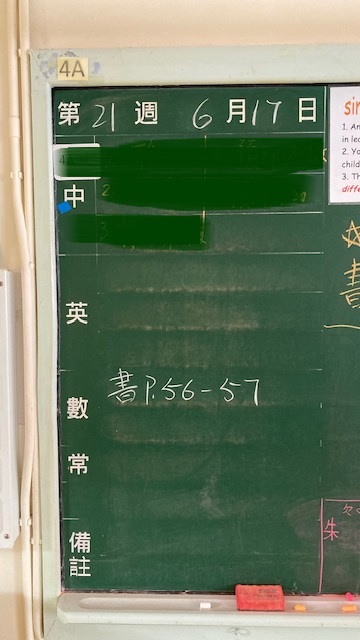 4A
第21週 6月17日
中
英
數 書P.56-57
常
備註
sin
1. An
in lea
2. Yo
child
3. Th
diffe
書
朱